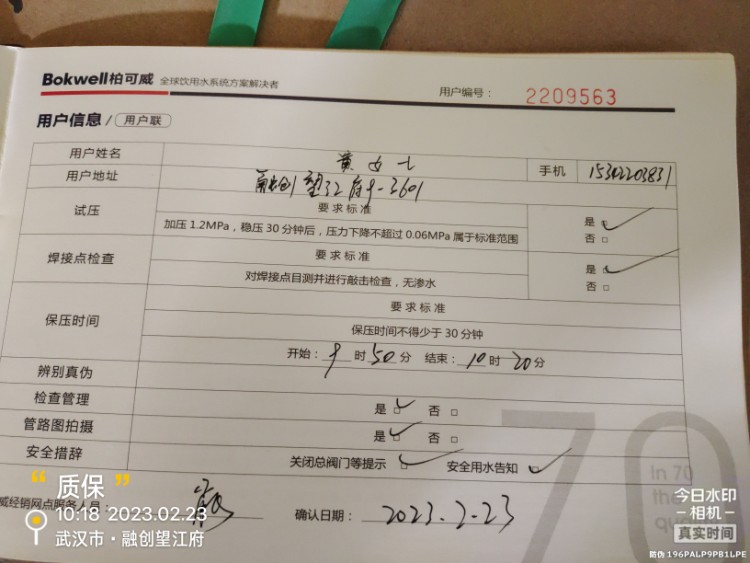 Bokwell柏可威 全球饮用水系统方案解决者
用户编号: 2209563
用户信息 / 用户联
用户姓名 黄女士 手机 15302203831
用户地址 融创望江府9-3601
试压 要求标准 是
加压1.2MPa，稳压30分钟后，压力下降不超过0.06MPa属于标准范围 否
焊接点检查 要求标准 是
对焊接点目测并进行敲击检查，无渗水 否
保压时间 要求标准
保压时间不得少于30分钟
开始: 9时50分 结束: 10时20分
辨别真伪
检查管理 是 否
管路图拍摄 是 否
安全措辞 关闭总阀门等提示 安全用水告知
70
In 70
the
qu
威经销网点服务人员:
确认日期: 2023.2-23
质保
10:18 2023.02.23
武汉市·融创望江府
今日水印
相机
真实时间
防伪 196PALP9PB1LPE